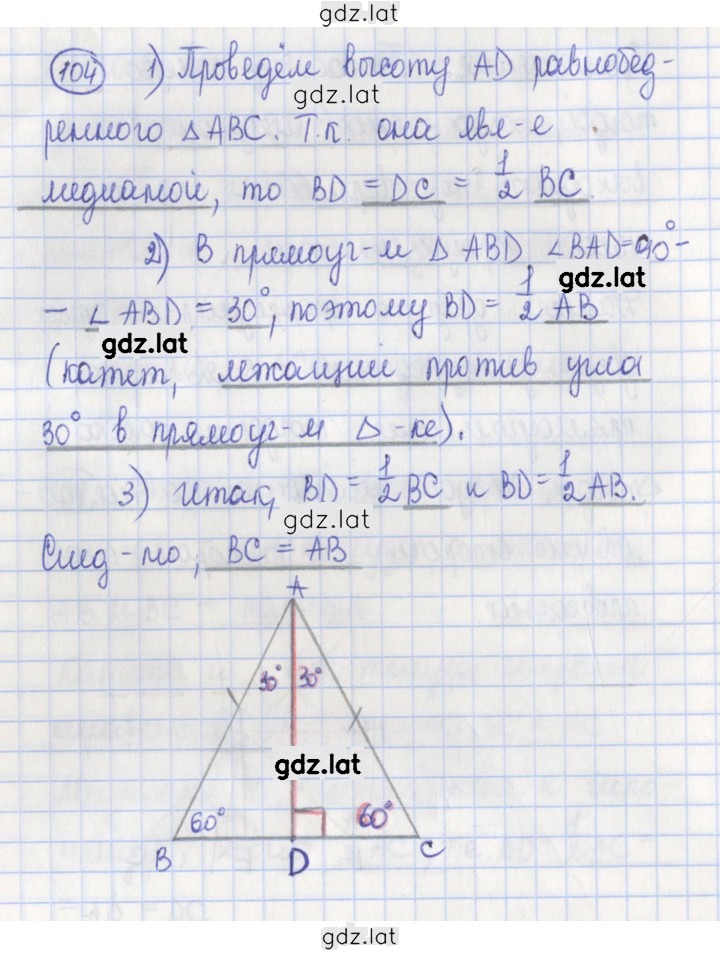 gdz.lat
104 1) Проведём высоту AD равнобед-
gdz.lat
ренного △ABC. Т.к. она явл-е
медианой, то BD = DC = 1/2 BC.
2) В прямоуг-м △ ABD ∠BAD=90°-
gdz.lat
- ∠ ABD = 30°, поэтому BD = 1/2 AB
gdz.lat
(катет, лежащий против угла
30° в прямоуг-м △-ке).
3) Итак, BD = 1/2 BC и BD = 1/2 AB.
gdz.lat
След-но, BC = AB
A
30° 30°
gdz.lat
60° 60°
B D C
gdz.lat